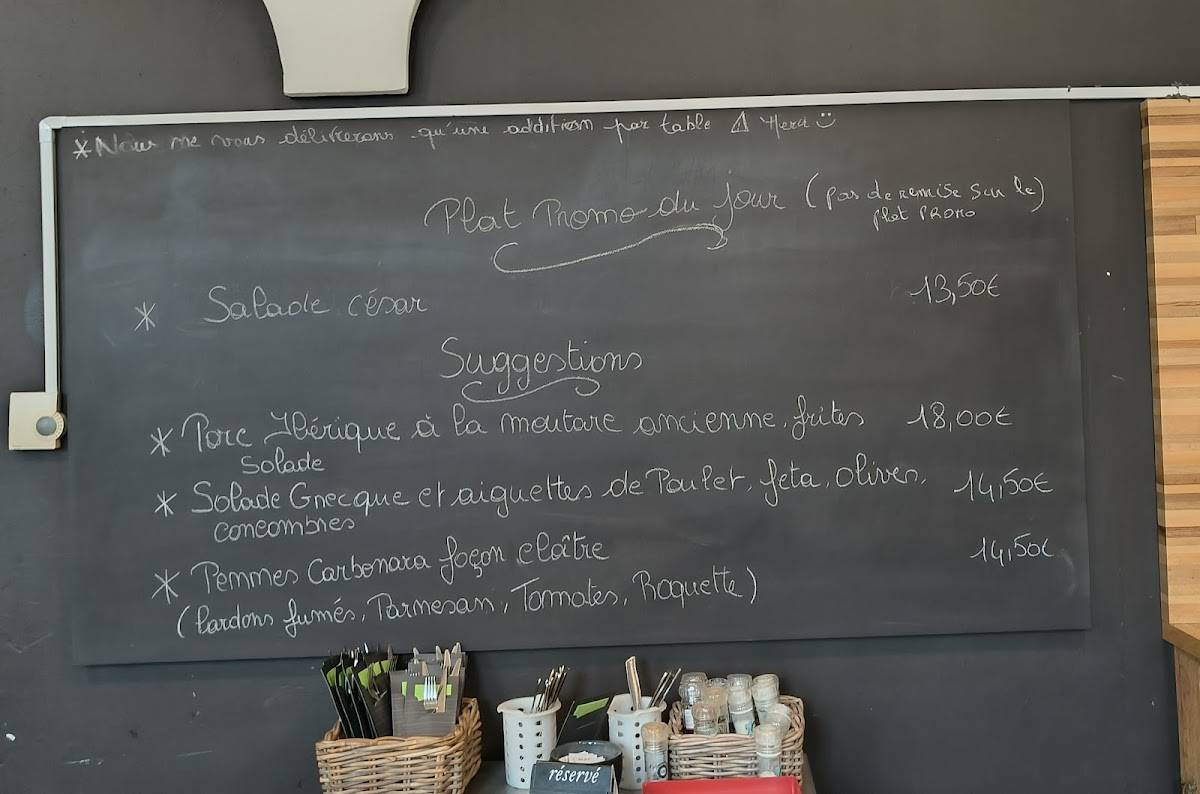 * Nous ne vous délivrerons qu'une addition par table ⚠ Merci :)
Plat Promo du jour (pas de remise sur le)
plat PROMO
* Salade césar 13,50€
Suggestions
* Porc Ibérique à la moutare ancienne, frites 18,00€
Salade
* Salade Grecque et aiguettes de Poulet, feta, olives, 14,50€
concombres
* Pennes Carbonara façon cloître 14,50€
(lardons fumés, Parmesan, Tomates, Roquette)
réservé